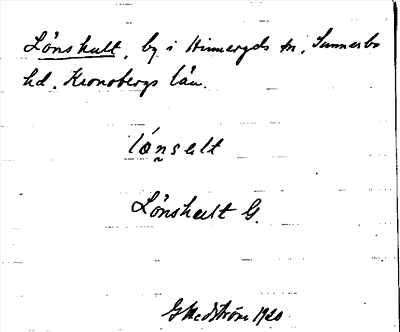 Lönshult, by i Hinneryds sn, Sunnerbo
hd. Kronobergs län.
Lönshult G.
G Hedström 1920